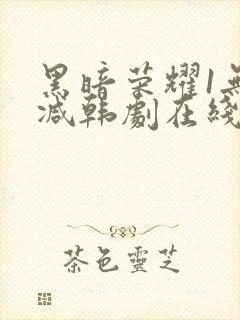 黑暗荣耀1無
减韩劇在綫
茶色靈芝